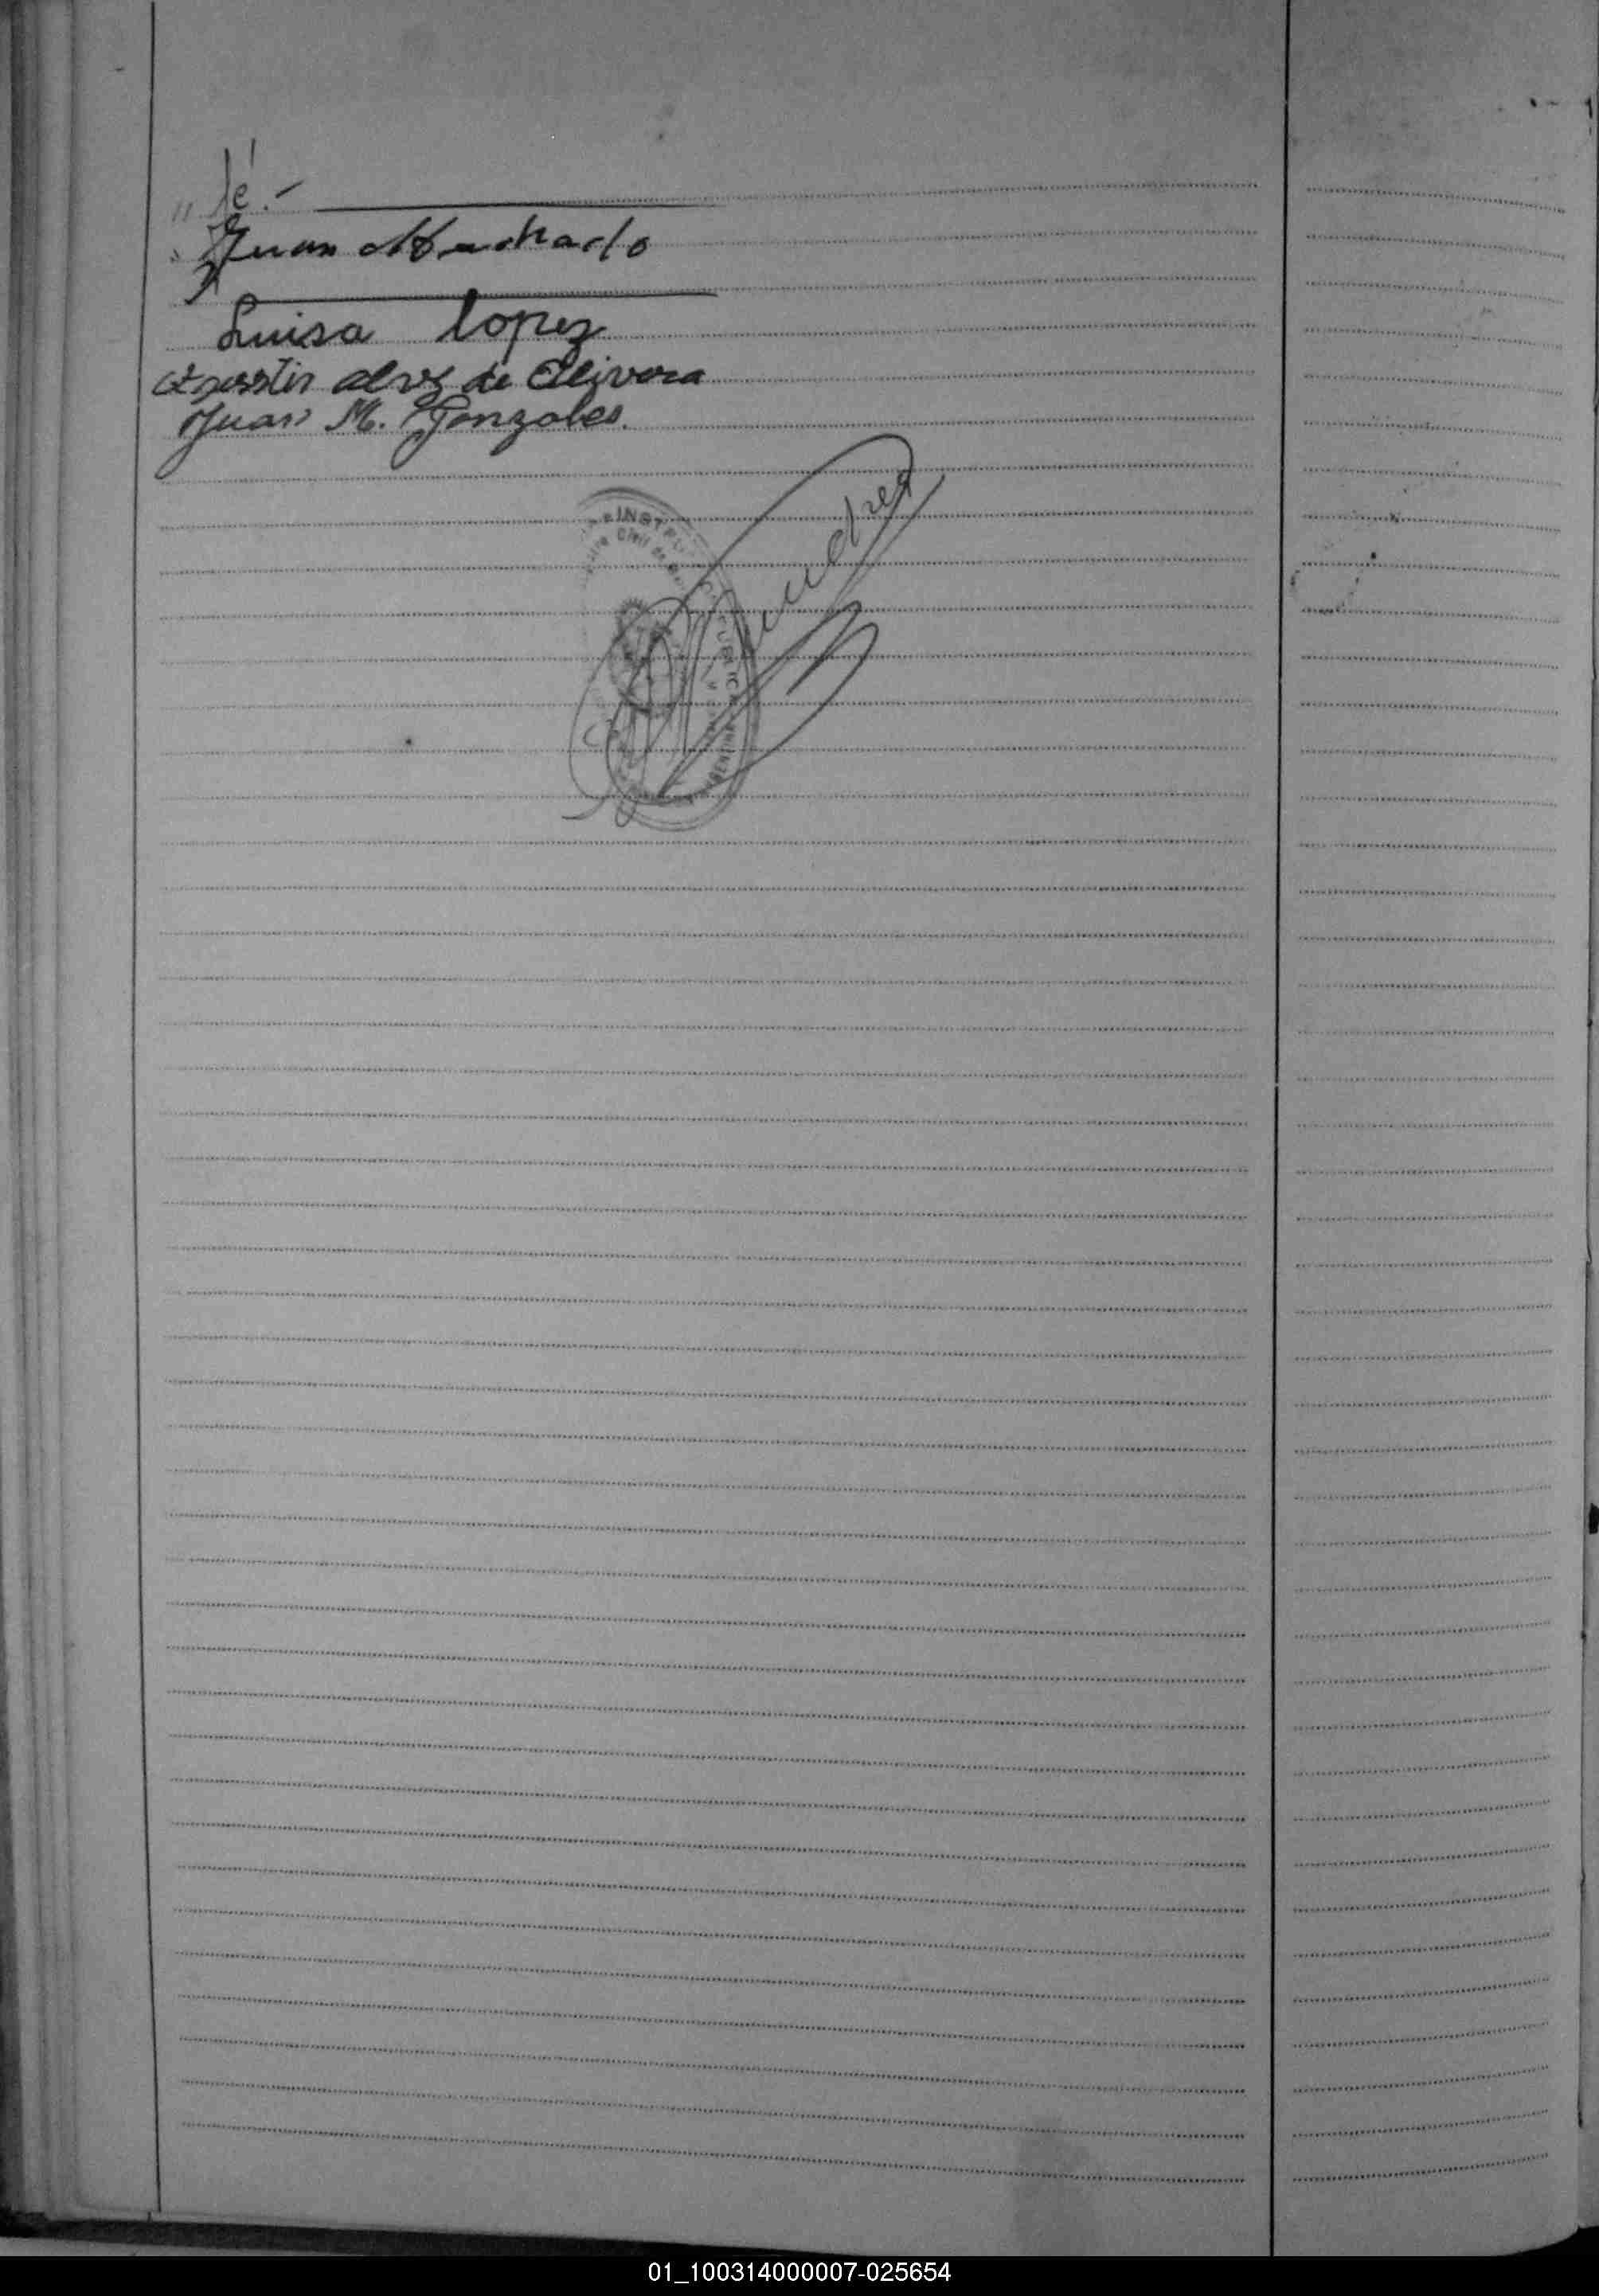 " fé.-
Juan Machado
Luisa Lopez
Agustin alvz de Olivera
Juan M. Gonzales.
Civil de
01_100314000007-025654